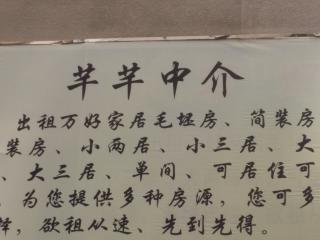 芊芊中介
出租万好家居毛坯房、简装房
装房、小两居、小三居、大
、大三居、单间、可居住可
。为您提供多种房源，您可多
择，欲租从速、先到先得。